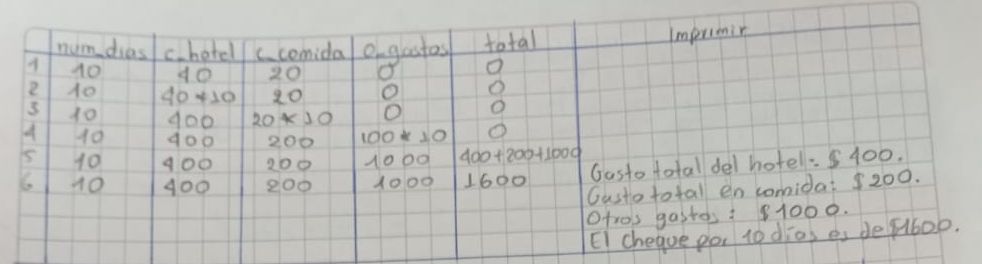 num_dias c_hotel c_comida o_gastos total Imprimir
1 10 40 20 0 0
2 10 40*10 20 0 0
3 10 400 20*10 0 0
4 10 400 200 100*10 0
5 10 400 200 1000 400+200+1000
6 10 400 200 1000 1600
Gasto total del hotel: $400.
Gasto total en comida: $200.
Otros gastos: $1000.
El cheque por 10 dias es de $1600.